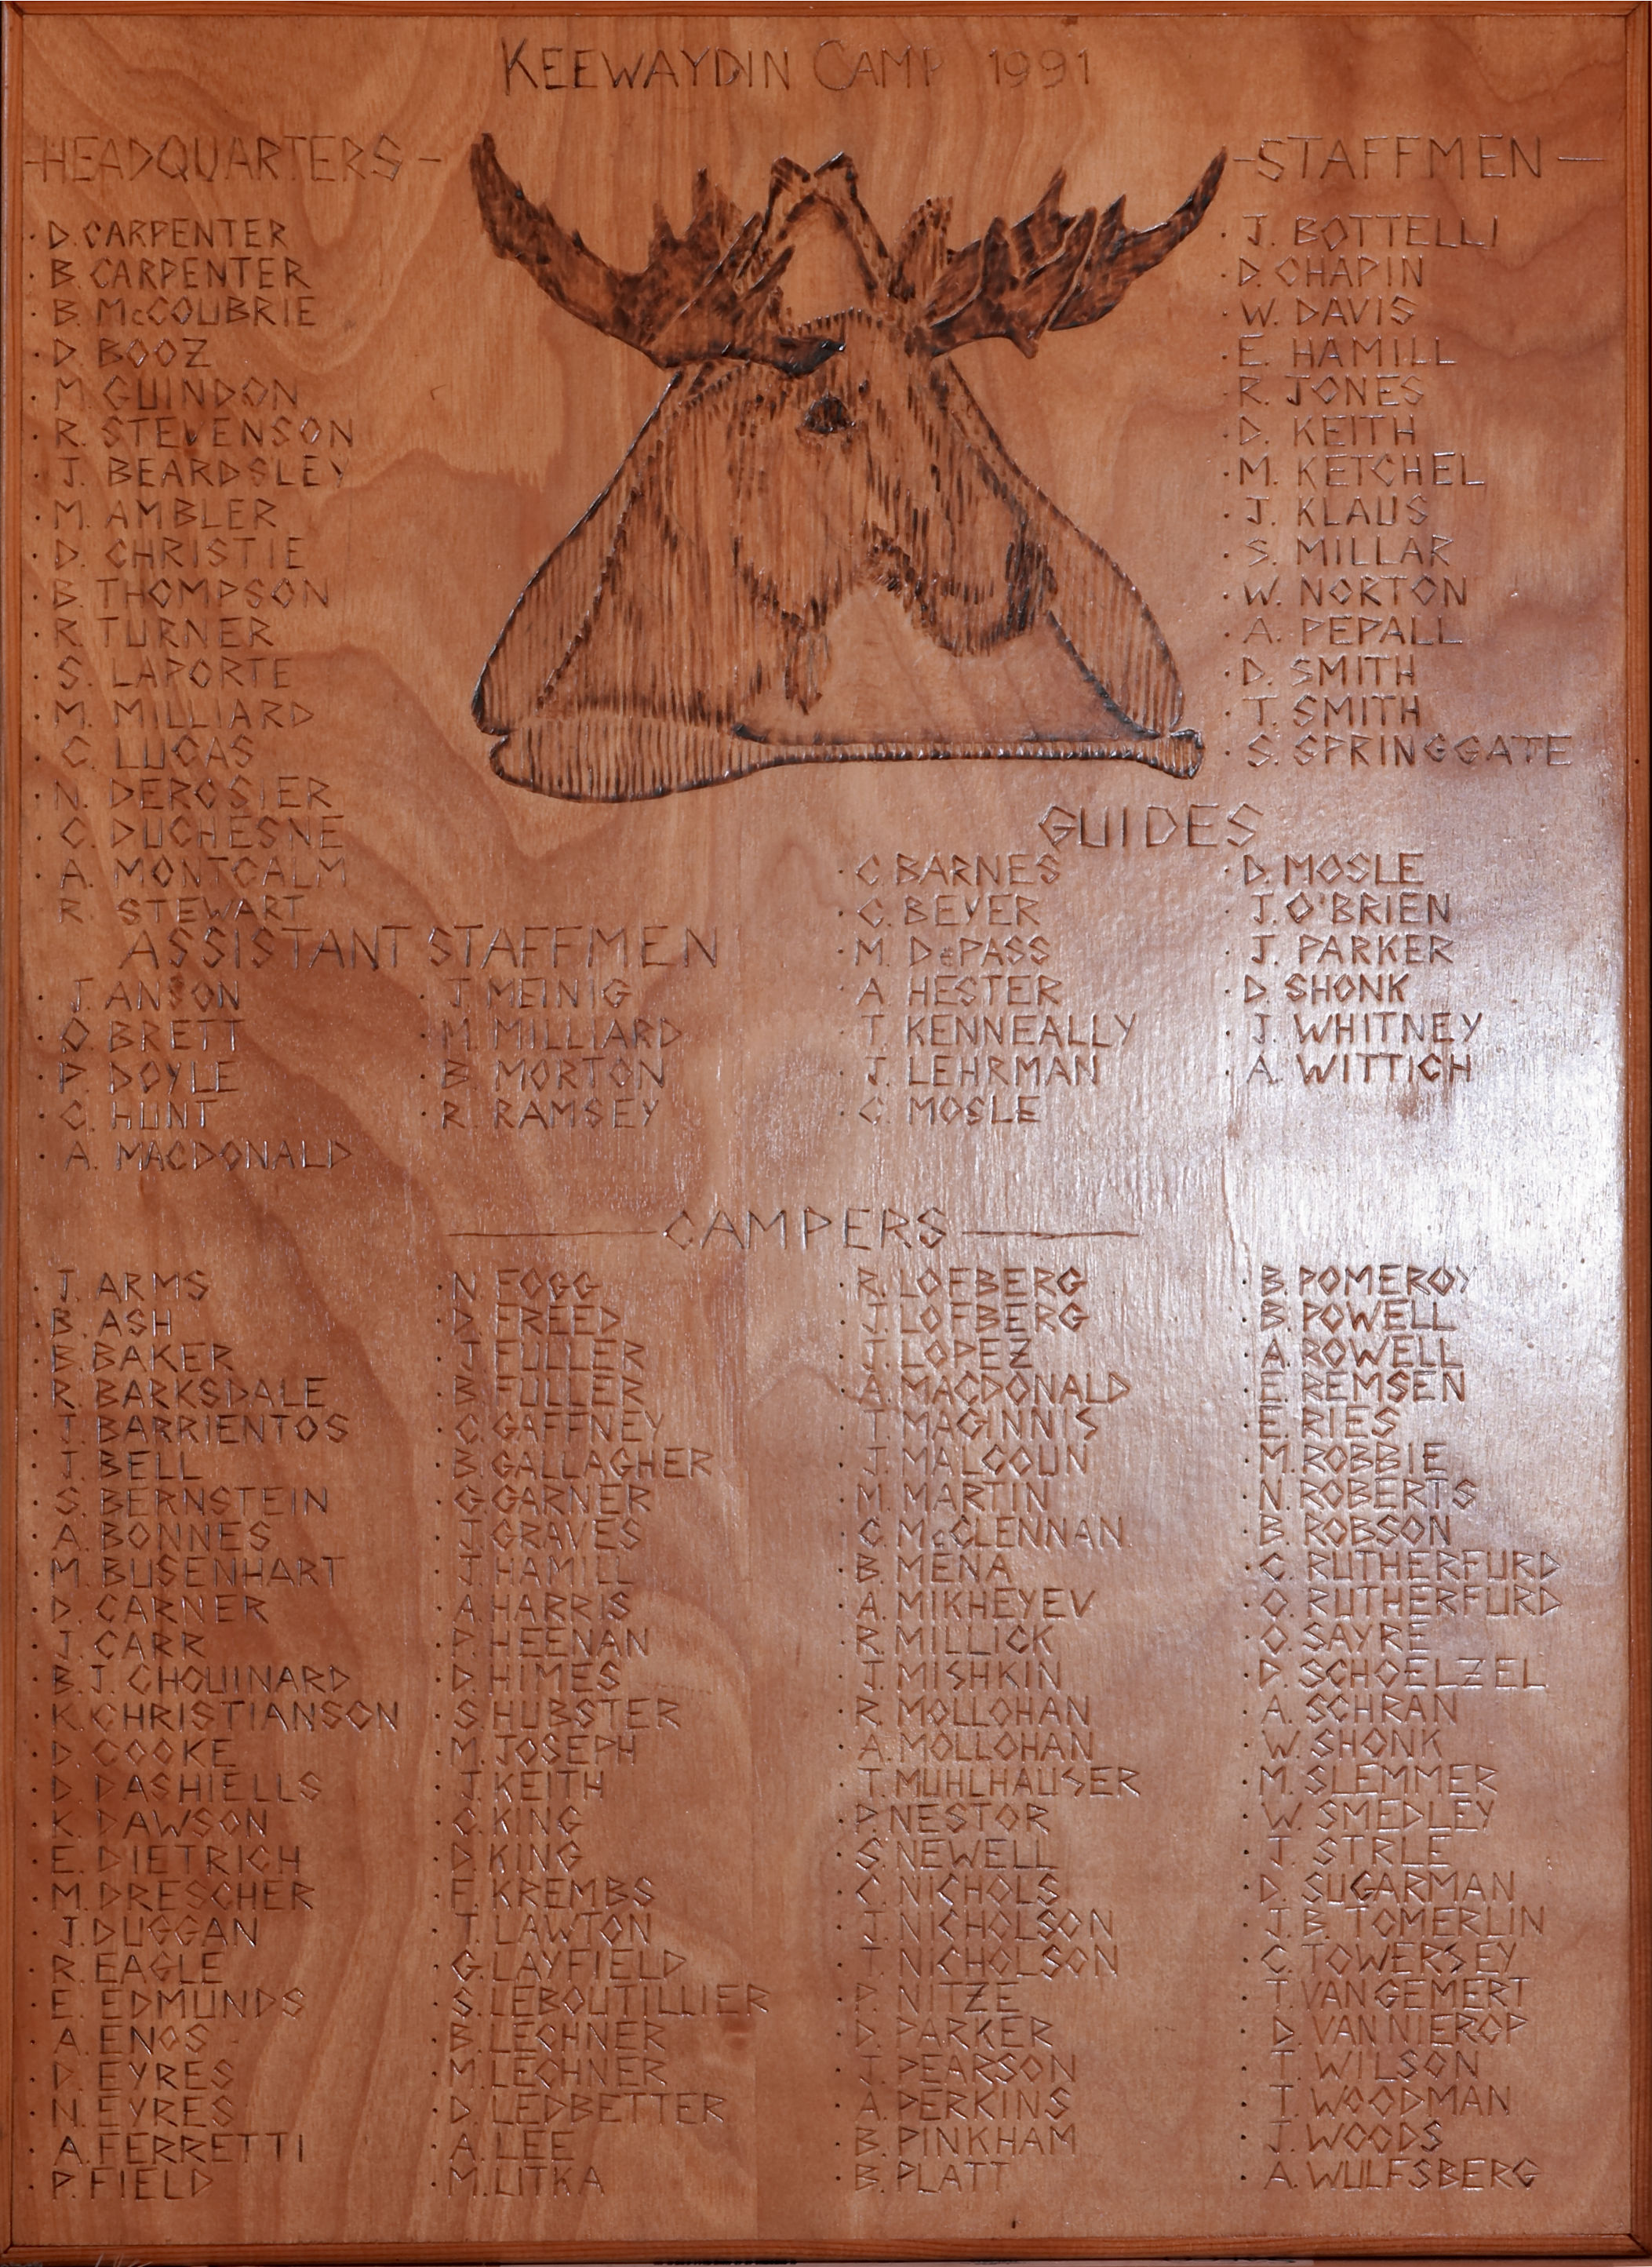 KEEWAYDIN CAMP 1991
-HEADQUARTERS-
· D. CARPENTER
· B. CARPENTER
· B. McCOUBRIE
· D. BOOZ
· M. GUINDON
· R. STEVENSON
· J. BEARDSLEY
· M. AMBLER
· D. CHRISTIE
· B. THOMPSON
· R. TURNER
· S. LAPORTE
· M. MILLIARD
· C. LUCAS
· N. DEROSIER
· C. DUCHESNE
· A. MONTCALM
R. STEWART
-STAFFMEN-
· J. BOTTELLI
· D. CHAPIN
· W. DAVIS
· E. HAMILL
· R. JONES
· D. KEITH
· M. KETCHEL
· J. KLAUS
· S. MILLAR
· W. NORTON
· A. PEPALL
· D. SMITH
· T. SMITH
· S. SPRINGGATE
ASSISTANT STAFFMEN
· J. ANSON
· O. BRETT
· P. DOYLE
· C. HUNT
· A. MACDONALD
· J. MEINIG
· M. MILLIARD
· B. MORTON
· R. RAMSEY
GUIDES
· C. BARNES
· C. BEYER
· M. DePASS
· A HESTER
· T. KENNEALLY
· J. LEHRMAN
· C. MOSLE
· D. MOSLE
· J. O'BRIEN
· J. PARKER
· D. SHONK
· J. WHITNEY
· A. WITTICH
CAMPERS
· T. ARMS
· B. ASH
· B. BAKER
· R. BARKSDALE
· T. BARRIENTOS
· J. BELL
· S. BERNSTEIN
· A. BONNES
· M. BUSENHART
· D. CARNER
· J. CARR
· B.J. CHOUINARD
· K. CHRISTIANSON
· D. COOKE
· D. DASHIELLS
· K. DAWSON
· E. DIETRICH
· M. DRESCHER
· J. DUGGAN
· R. EAGLE
· E. EDMUNDS
· A. ENOS
· D. EYRES
· N. EYRES
· A. FERRETTI
· P. FIELD
· N. FOGG
· D. FREED
· J. FULLER
· B. FULLER
· C. GAFFNEY
· B. GALLAGHER
· G. GARNER
· J. GRAVES
· J. HAMILL
· A. HARRIS
· P. HEENAN
· D. HIMES
· S. HUBSTER
· M. JOSEPH
· J. KEITH
· C. KING
· D. KING
· F. KREMBS
· T. LAWTON
· G. LAYFIELD
· S. LEBOUTILLIER
· B. LECHNER
· M. LECHNER
· D. LEDBETTER
· A. LEE
· M. LITKA
· R. LOFBERG
· J. LOFBERG
· J. LOPEZ
· A. MACDONALD
· T. MAGINNIS
· J. MALCOUN
· M. MARTIN
· C. McCLENNAN
· B. MENA
· A. MIKHEYEV
· R. MILLICK
· J. MISHKIN
· R. MOLLOHAN
· A. MOLLOHAN
· T. MUHLHAUSER
· P. NESTOR
· S. NEWELL
· C. NICHOLS
· J. NICHOLSON
· T. NICHOLSON
· P. NITZE
· D. PARKER
· J. PEARSON
· A. PERKINS
· B. PINKHAM
· B. PLATT
· B. POMEROY
· B. POWELL
· A. ROWELL
· E. REMSEN
· E. RIES
· M. ROBBIE
· N. ROBERTS
· B. ROBSON
· C. RUTHERFURD
· O. RUTHERFURD
· O. SAYRE
· D. SCHOELZEL
· A. SCHRAN
· W. SHONK
· M. SLEMMER
· W. SMEDLEY
· J. STRLE
· D. SUGARMAN
· J.B. TOMERLIN
· C. TOWERSEY
· T. VAN GEMERT
· D. VAN NIEROP
· T. WILSON
· T. WOODMAN
· J. WOODS
· A. WULFSBERG